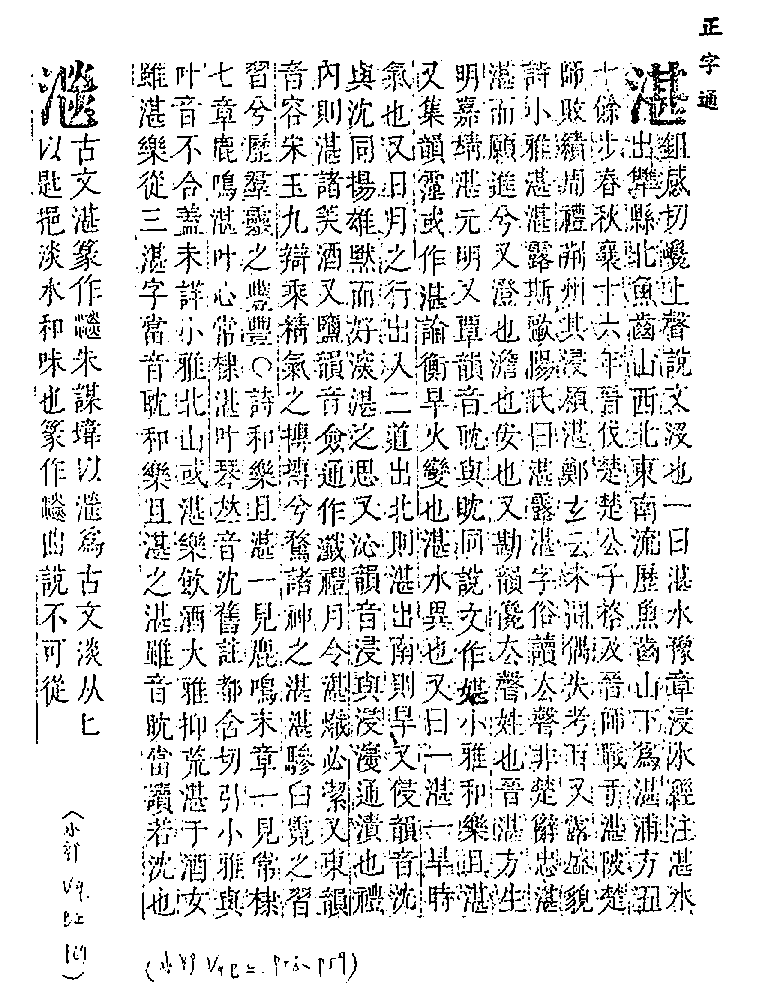 正字通
湛
鉏感切巉上聲說文沒也一曰湛水豫章浸水經注湛水
出犨縣北魚齒山西北東南流歷魚齒山下爲湛浦方五
十餘步春秋襄十六年晉伐楚楚公子格及晉師戰于湛阪楚
師敗績周禮荊州其浸潁湛鄭玄云未聞偶失考耳又露盛貌
詩小雅湛湛露斯歐陽氏曰湛露湛字俗讀去聲非楚辭忠湛
湛而願進兮又澄也澹也安也又勘韻儳去聲姓也晉湛方生
明嘉靖湛元明又覃韻音耽與耽同說文作媅小雅和樂且湛
又集韻霪或作湛論衡旱火變也湛水異也又曰一湛一旱時
氣也又日月之行出入二道出北則湛出南則旱又侵韻音沈
與沈同揚雄默而好深湛之思又沁韻音浸與浸濅通漬也禮
內則湛諸美酒又鹽韻音僉通作瀸禮月令湛熾必潔又東韻
音容宋玉九辯乘精氣之摶摶兮騖諸神之湛湛驂白霓之習
習兮歷羣靈之豐豐○詩和樂且湛一見鹿鳴末章一見常棣
七章鹿鳴湛叶心常棣湛叶琴𠀤音沈舊註都含切引小雅與
叶音不合蓋未詳小雅北山或湛樂飲酒大雅抑荒湛于酒女
雖湛樂從三湛字當音耽和樂且湛之湛雖音耽當讀若沈也
古文湛篆作 朱謀㙔以 爲古文淡从匕
以匙挹淡水和味也篆作 曲說不可從